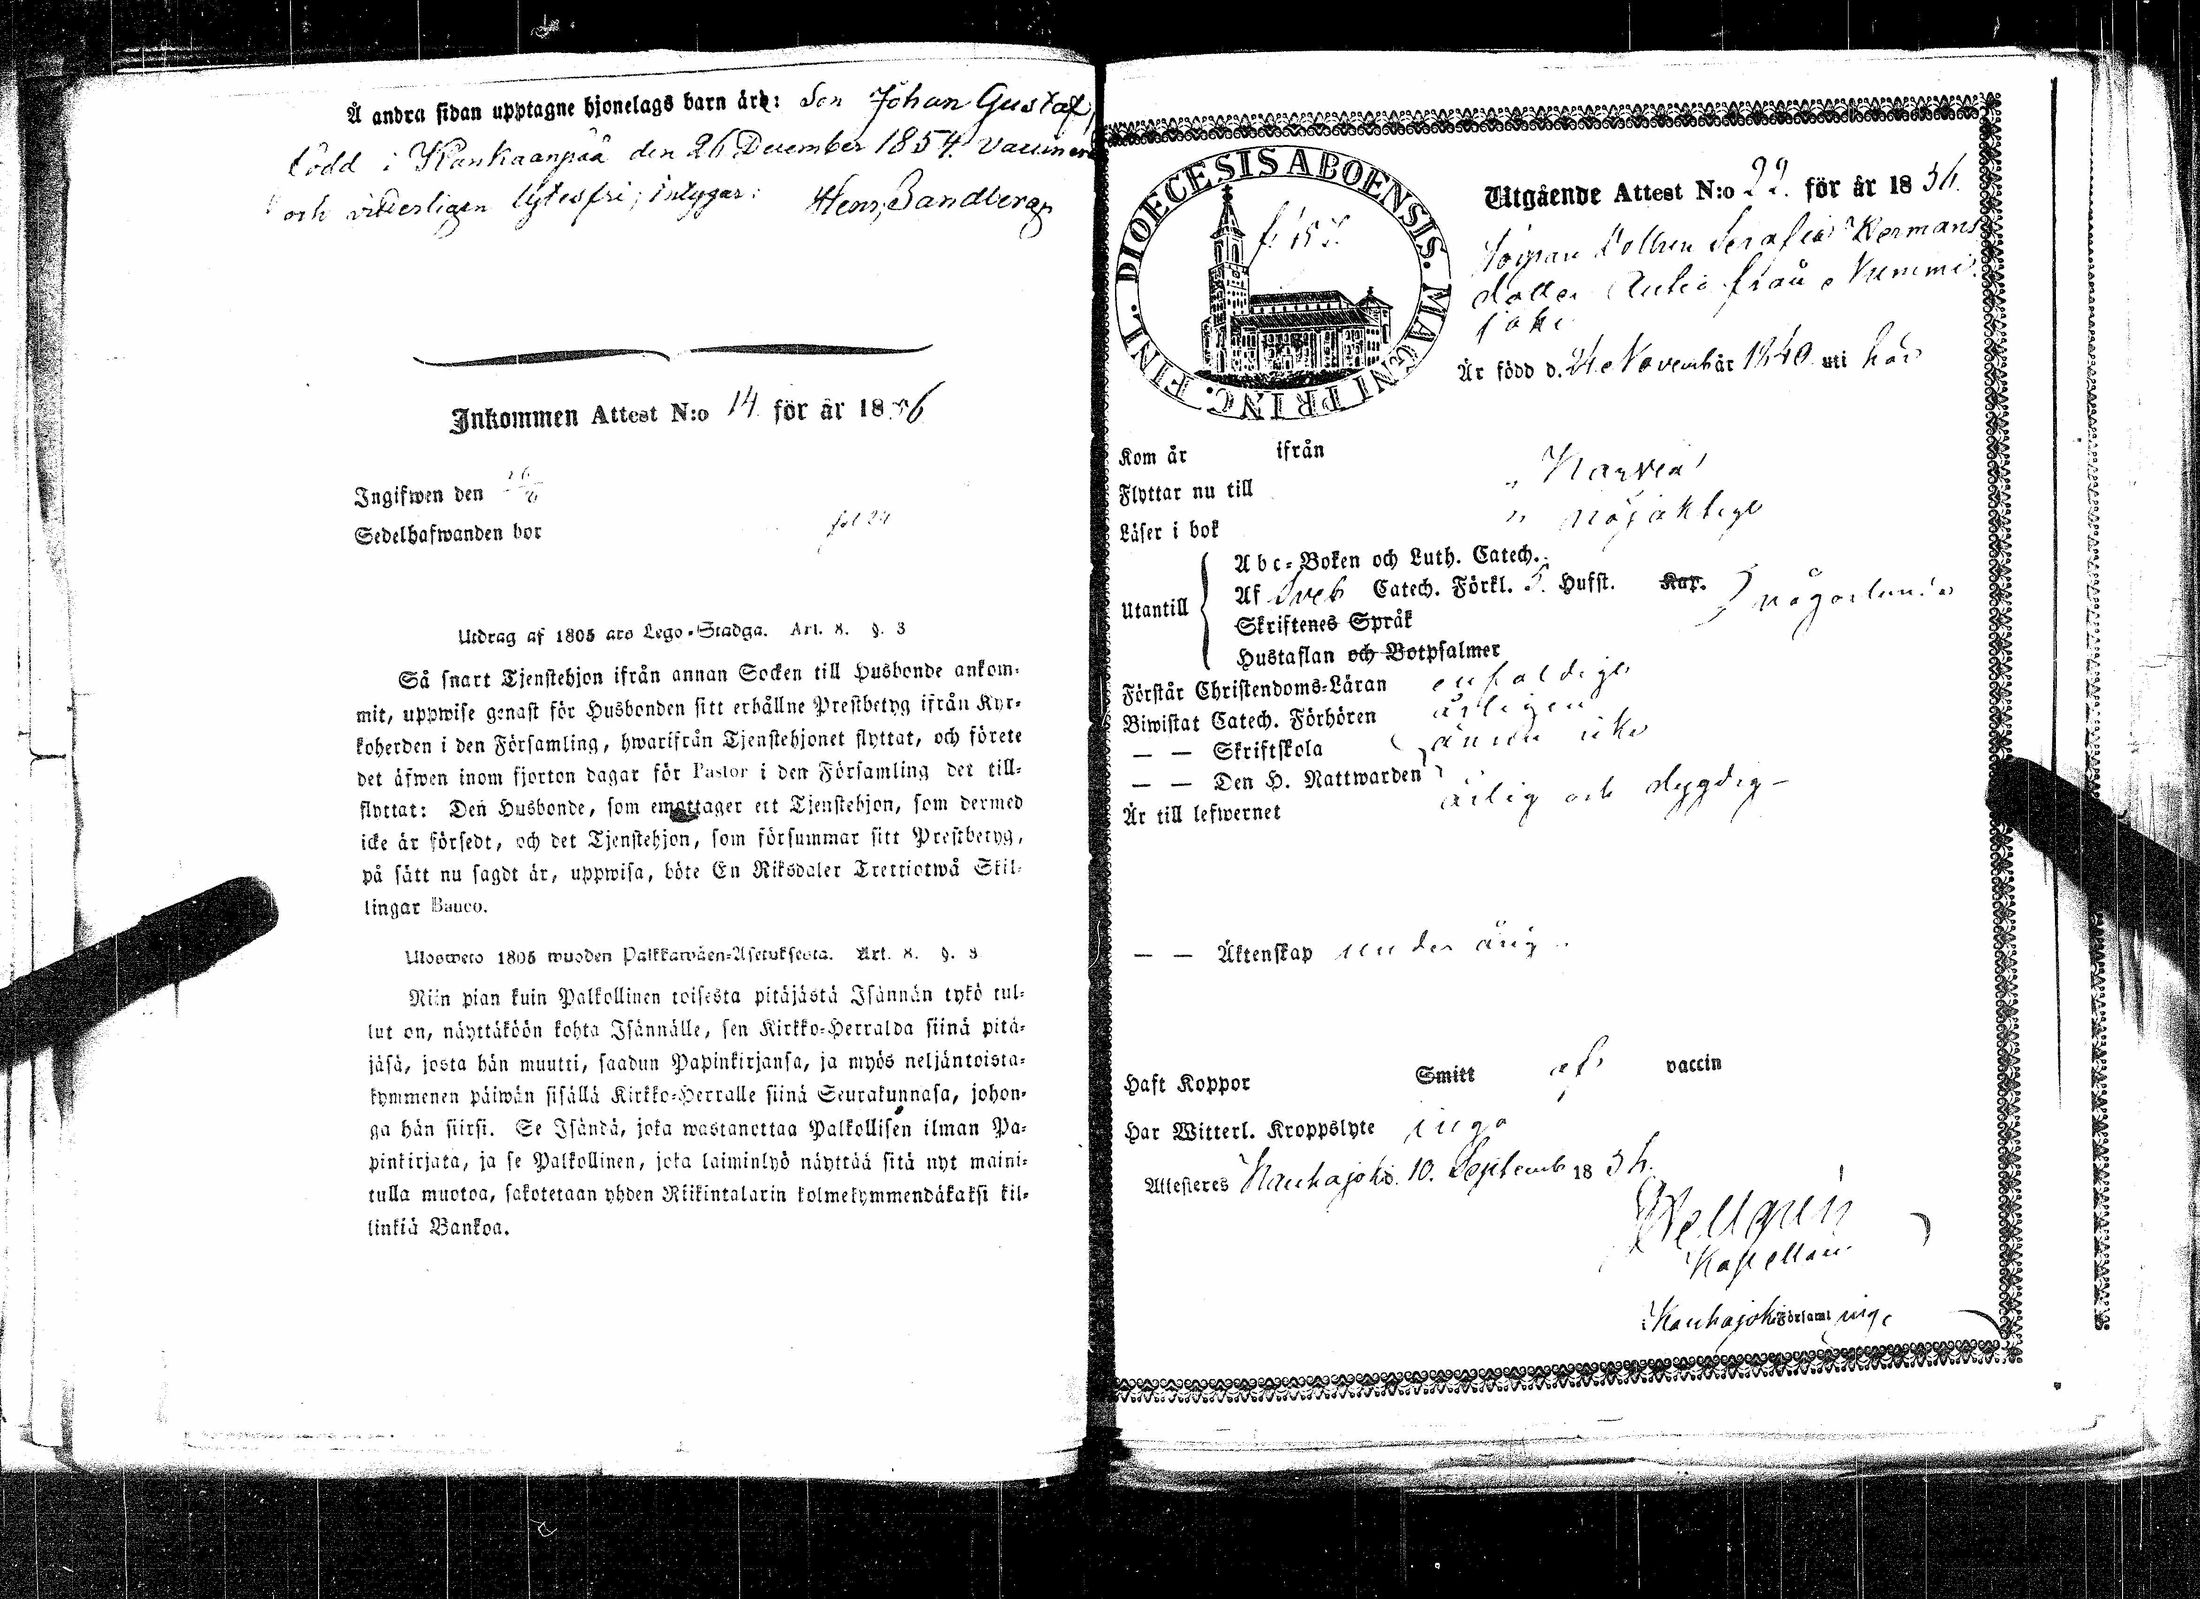 Å andra sidan upptagne hjonelags barn är: Son Johan Gustaf,
född i Kankaanpää den 26 December 1854. vaccinerad
och vitterligen lytesfri; intygar: Henr, Sandberg
Inkommen Attest N:o 14. för år 1856
Ingifwen den
Sedelhafwanden bor fol 24
Utdrag af 1805 års Lego-Stadga. Art. 8. §. 3
Så snart Tjenstehjon ifrån annan Socken till Husbonde ankom-
mit, uppwise genast för Husbonden sitt erhållne Prestbetyg ifrån Kyr-
koherden i den Församling, hwarifrån Tjenstehjonet flyttat, och förete
det äfwen inom fjorton dagar för Pastor i den Församling det till-
flyttat: Den Husbonde, som emottager ett Tjenstehjon, som dermed
icke är försedt, och det Tjenstehjon, som försummar sitt Prestbetyg,
på sätt nu sagdt är, uppwisa, böte En Riksdaler Trettiotwå Skil-
lingar Banco.
Ulosweto 1805 wuoden Palkkawäen-Asetuksesta. Art. 8. §. 3
Niin pian kuin Palkollinen toisesta pitäjästä Isännän tykö tul-
lut on, näyttäköön kohta Isännälle, sen Kirkko-Herralda siinä pitä-
jäsä, josta hän muutti, saadun Papinkirjansa, ja myös neljäntoista-
kymmenen päiwän sisällä Kirkko-Herralle siinä Seurakunnasa, johon-
ga hän siirsi. Se Isändä, joka wastanottaa Palkollisen ilman Pa-
pinkirjata, ja se Palkollinen, joka laiminlyö näyttää sitä nyt maini-
tulla muotoa, sakotetaan yhden Riikintalarin kolmekymmendäkaksi kil-
linkiä Bankoa.
DIOECESIS ABOENSIS. MAGNI PRINC. FINL.
Utgående Attest N:o 22. för år 1856.
Serafia Hermans
dotter från Nummi
joki
Är född d. 24 November år 1840 uti här
Kom år ifrån
Flyttar nu till Karvia
Läser i bok nöjaktigt
Utantill
Abc-Boken och Luth. Catech.
Af Sveb Catech. Förkl. 5. Hufst. Kap. någorlunda
Skriftenes Språk
Hustaflan och Botpsalmer
Förstår Christendoms-Läran enfaldigt
Biwistat Catech. Förhören årligen
— — Skriftskola ännu icke
— — Den H. Nattwarden
Är till lefwernet ärlig och dygdig
— — Äktenskap under årig
Haft Koppor Smitt af vaccin
Har Witterl. Kroppslyte inga
Attesteres Kauhajoki 10. Septemb 1856.
Kapellan
i Kauhajoki Församling